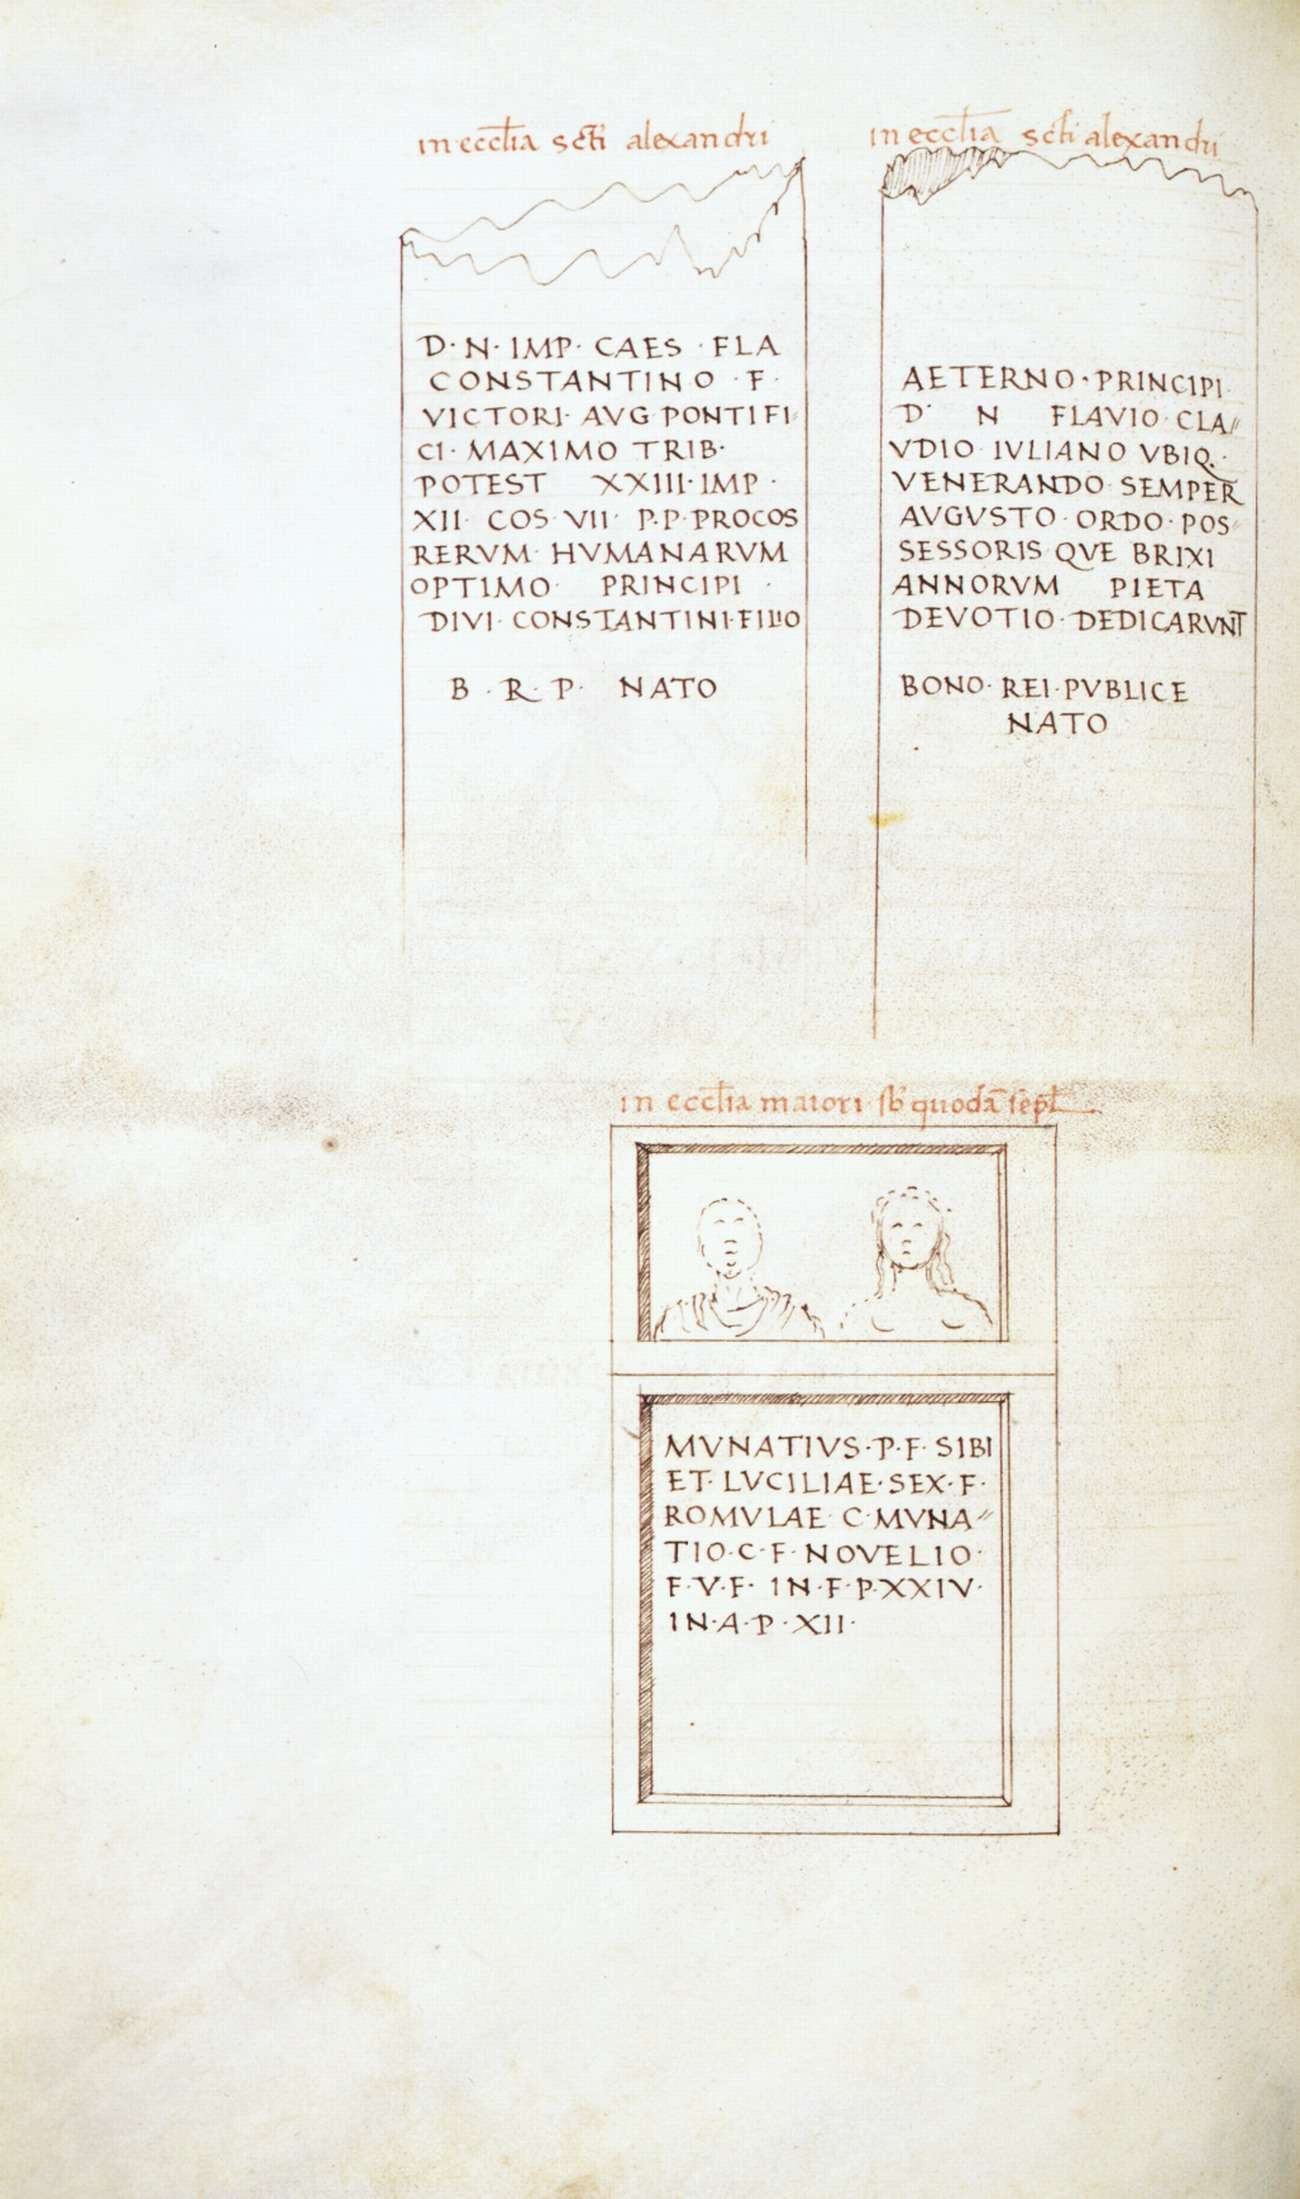 in eccl̄ia sc̄ti alexandri
D·N·IMP·CAES·FLA
CONSTANTINO·F·
VICTORI·AVG·PONTIFI
CI·MAXIMO TRIB·
POTEST XXIII·IMP·
XII·COS·VII·P·P·PROCOS
RERVM·HVMANARVM
OPTIMO· PRINCIPI·
DIVI·CONSTANTINI·FILIO
B·R·P· NATO
in eccl̄ia sc̄ti alexandri
AETERNO·PRINCIPI·
D· N FLAVIO·CLA//
VDIO·IVLIANO VBIQ·
VENERANDO·SEMPER
AVGVSTO·ORDO·POS//
SESSORIS·QVE BRIXI
ANNORVM PIETA
DEVOTIO·DEDICARVNT
BONO·REI·PVBLICE
NATO
in eccl̄ia maiori sb̄ quodā sep̄l
MVNATIVS·P·F·SIBI
ET·LVCILIAE·SEX·F·
ROMVLAE·C·MVNA//
TIO·C·F·NOVELIO·
F·V·F·IN·F·P·XXIV·
IN·A·P·XII·